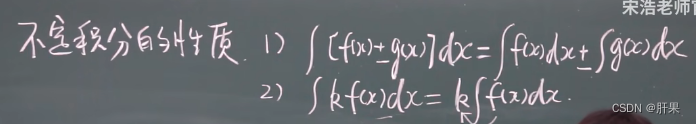 宋浩老师官
不定积分的性质. 1) ∫[f(x)±g(x)]dx=∫f(x)dx±∫g(x)dx
2) ∫kf(x)dx=k∫f(x)dx.
CSDN @肝果